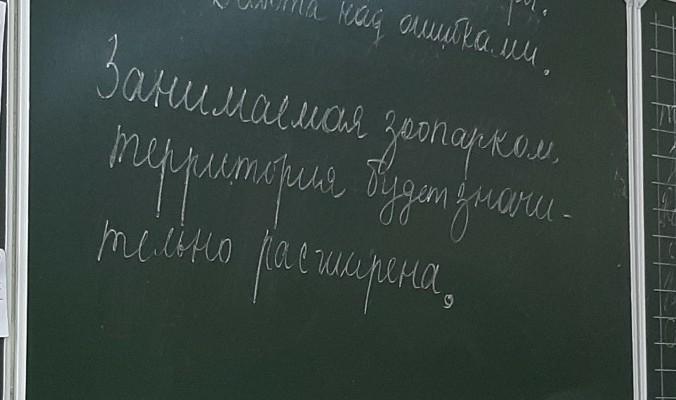 Работа над ошибками.
Занимаемая зоопарком
территория будет значи-
тельно расширена.